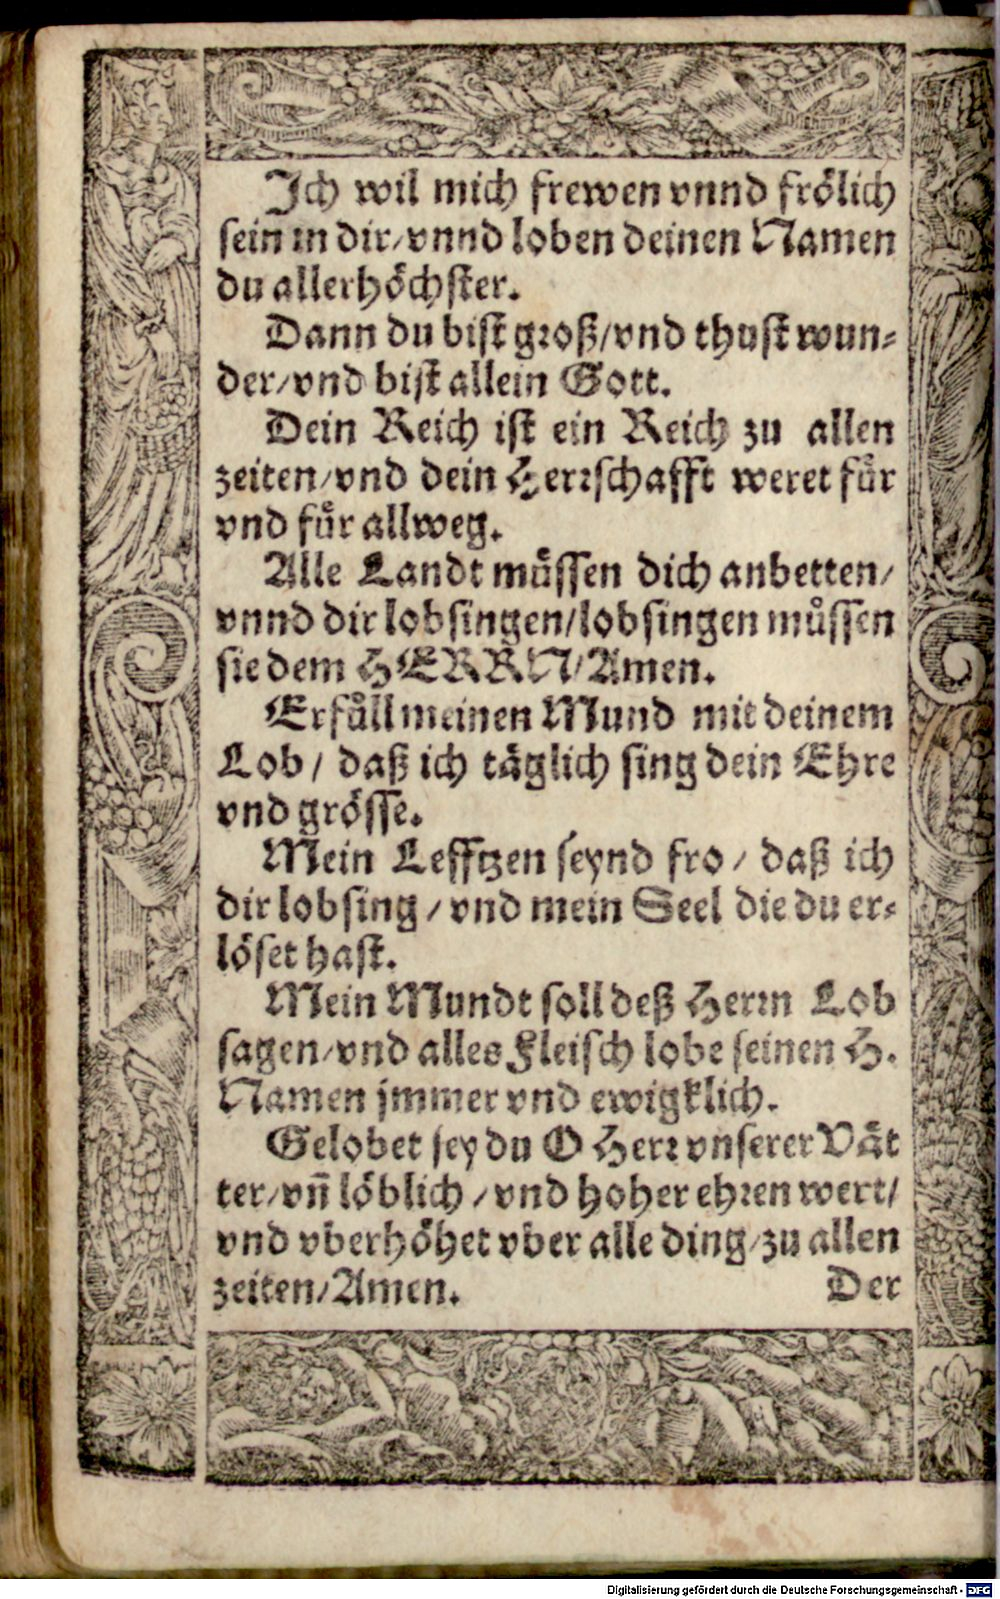 Ich wil mich frewen vnnd frölich
sein in dir/vnnd loben deinen Namen
du allerhöchster.
Dann du bist groß/vnd thust wun⸗
der/vnd bist allein Gott.
Dein Reich ist ein Reich zu allen
zeiten/vnd dein Herrschafft weret fuͤr
vnd fuͤr allweg.
Alle Landt muͤssen dich anbetten/
vnnd dir lobsingen/lobsingen muͤssen
sie dem HERRN/Amen.
Erfuͤll meinen Mund mit deinem
Lob/ daß ich täglich sing dein Ehre
vnd grösse.
Mein Lefftzen seynd fro/ daß ich
dir lobsing/vnd mein Seel die du er⸗
löset hast.
Mein Mundt soll deß Herrn Lob
sagen/vnd alles Fleisch lobe seinen H.
Namen jmmer vnd ewigklich.
Gelobet sey du O Herr vnserer Vät
ter/vn̄ löblich/vnd hoher ehren wert/
vnd vberhöhet vber alle ding/zu allen
zeiten/Amen. Der
Digitalisierung gefördert durch die Deutsche Forschungsgemeinschaft - DFG